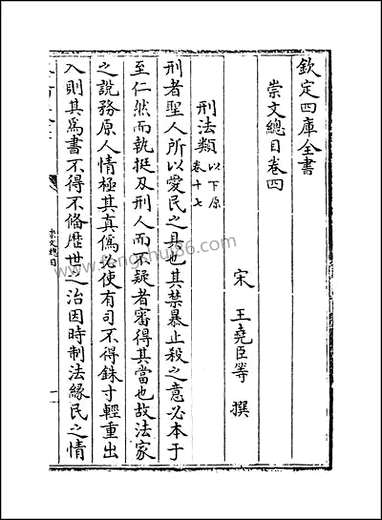 欽定四庫全書
崇文總目卷四
宋 王堯臣等 撰
刑法類以下原卷十七
刑者聖人所以愛民之具也其禁暴止殺之意必本于
至仁然而執挺及刑人而不疑者審得其當也故法家
之説務原人情極其真偽必使有司不得銖寸輕重出
入則其為書不得不備歴世之治因時制法緣民之情
崇文總目